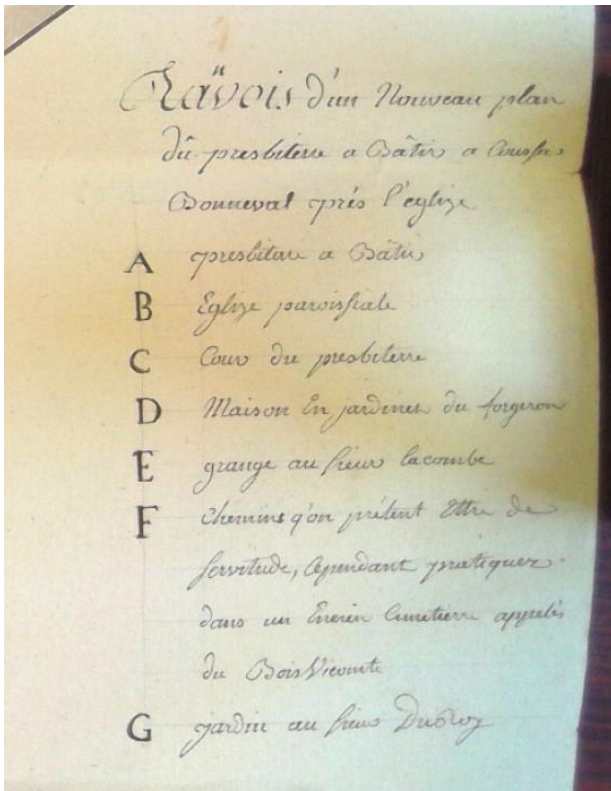 Ravois d'un Nouveau plan
dû presbiterre a Bâtir a Coussac
Bonneval prés l'eglize
A presbitere a Bâtir
B Eglize paroissiale
C Cour du presbiterre
D Maison En jardines du forgeron
E grange au sieur lacombe
F chemins q'on prétent Ettre de
servitude, Cependant pratiquez
dans un Encien Cimetierre appelés
du Bois Vicomte
G jardin au sieur Dubroy